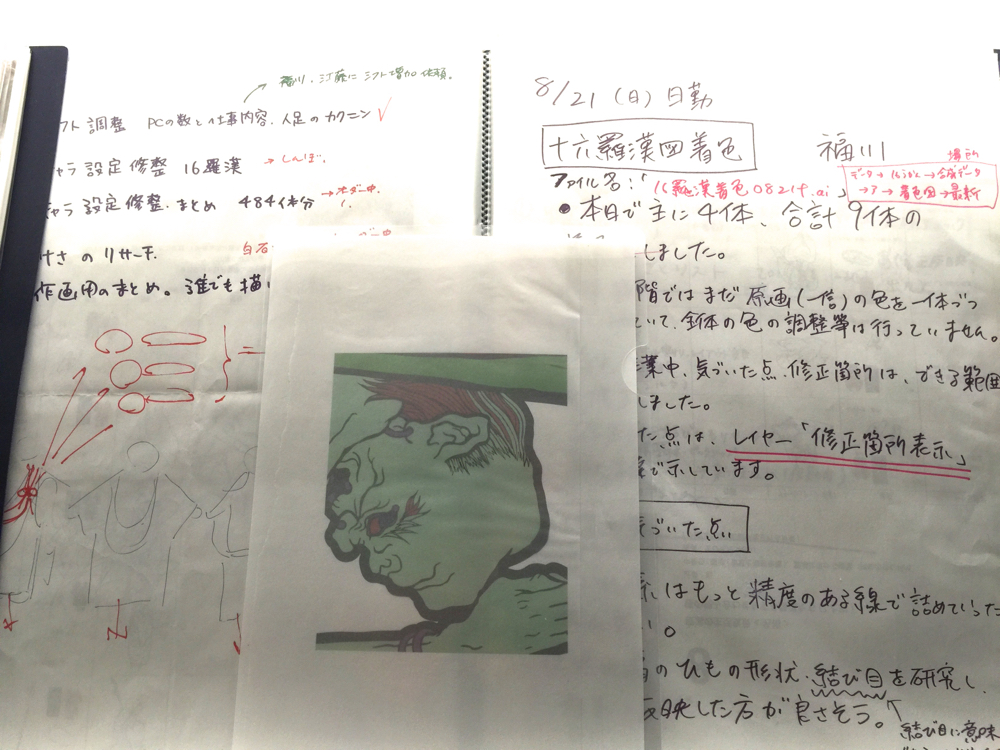 福川、江藤に シフト増加依頼。
フト 調整 PCの数と仕事内容、人足のカクニン
ャラ 設定修整 16羅漢 →しんぼ。
キャラ 設定修整、まとめ 484体分
けさ の リサーチ
白石
作画用のまとめ。誰でも描い
8/21 (日) 日勤
十六羅漢図着色
福川
場所
ファイル名:「16羅漢着色0821f.ai」
→ 着色図→最新
• 本日で主に4体、合計9体の
しました。
階ではまだ原画(一信)の色を一体づつ
いて、全体の色の調整等は行っていません。
業中、気づいた点、修正箇所は、できる範囲
しました。
た点は、レイヤー「修正箇所表示」
で示しています。
づいた点
はもっと精度のある線で詰めていった
い。
のひもの形状、結び目を研究し、
反映した方が良さそう。
結び目に意味